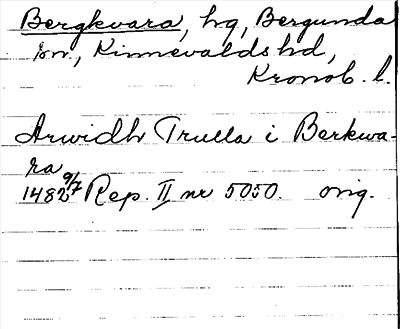 Bergkvara, hg, Bergunda
sn., Kinnevalds hd,
Kronob. l.
Arwidh Trulla i Berkwa-
ra
1482 9/7 Rep. II nr 5050. orig.